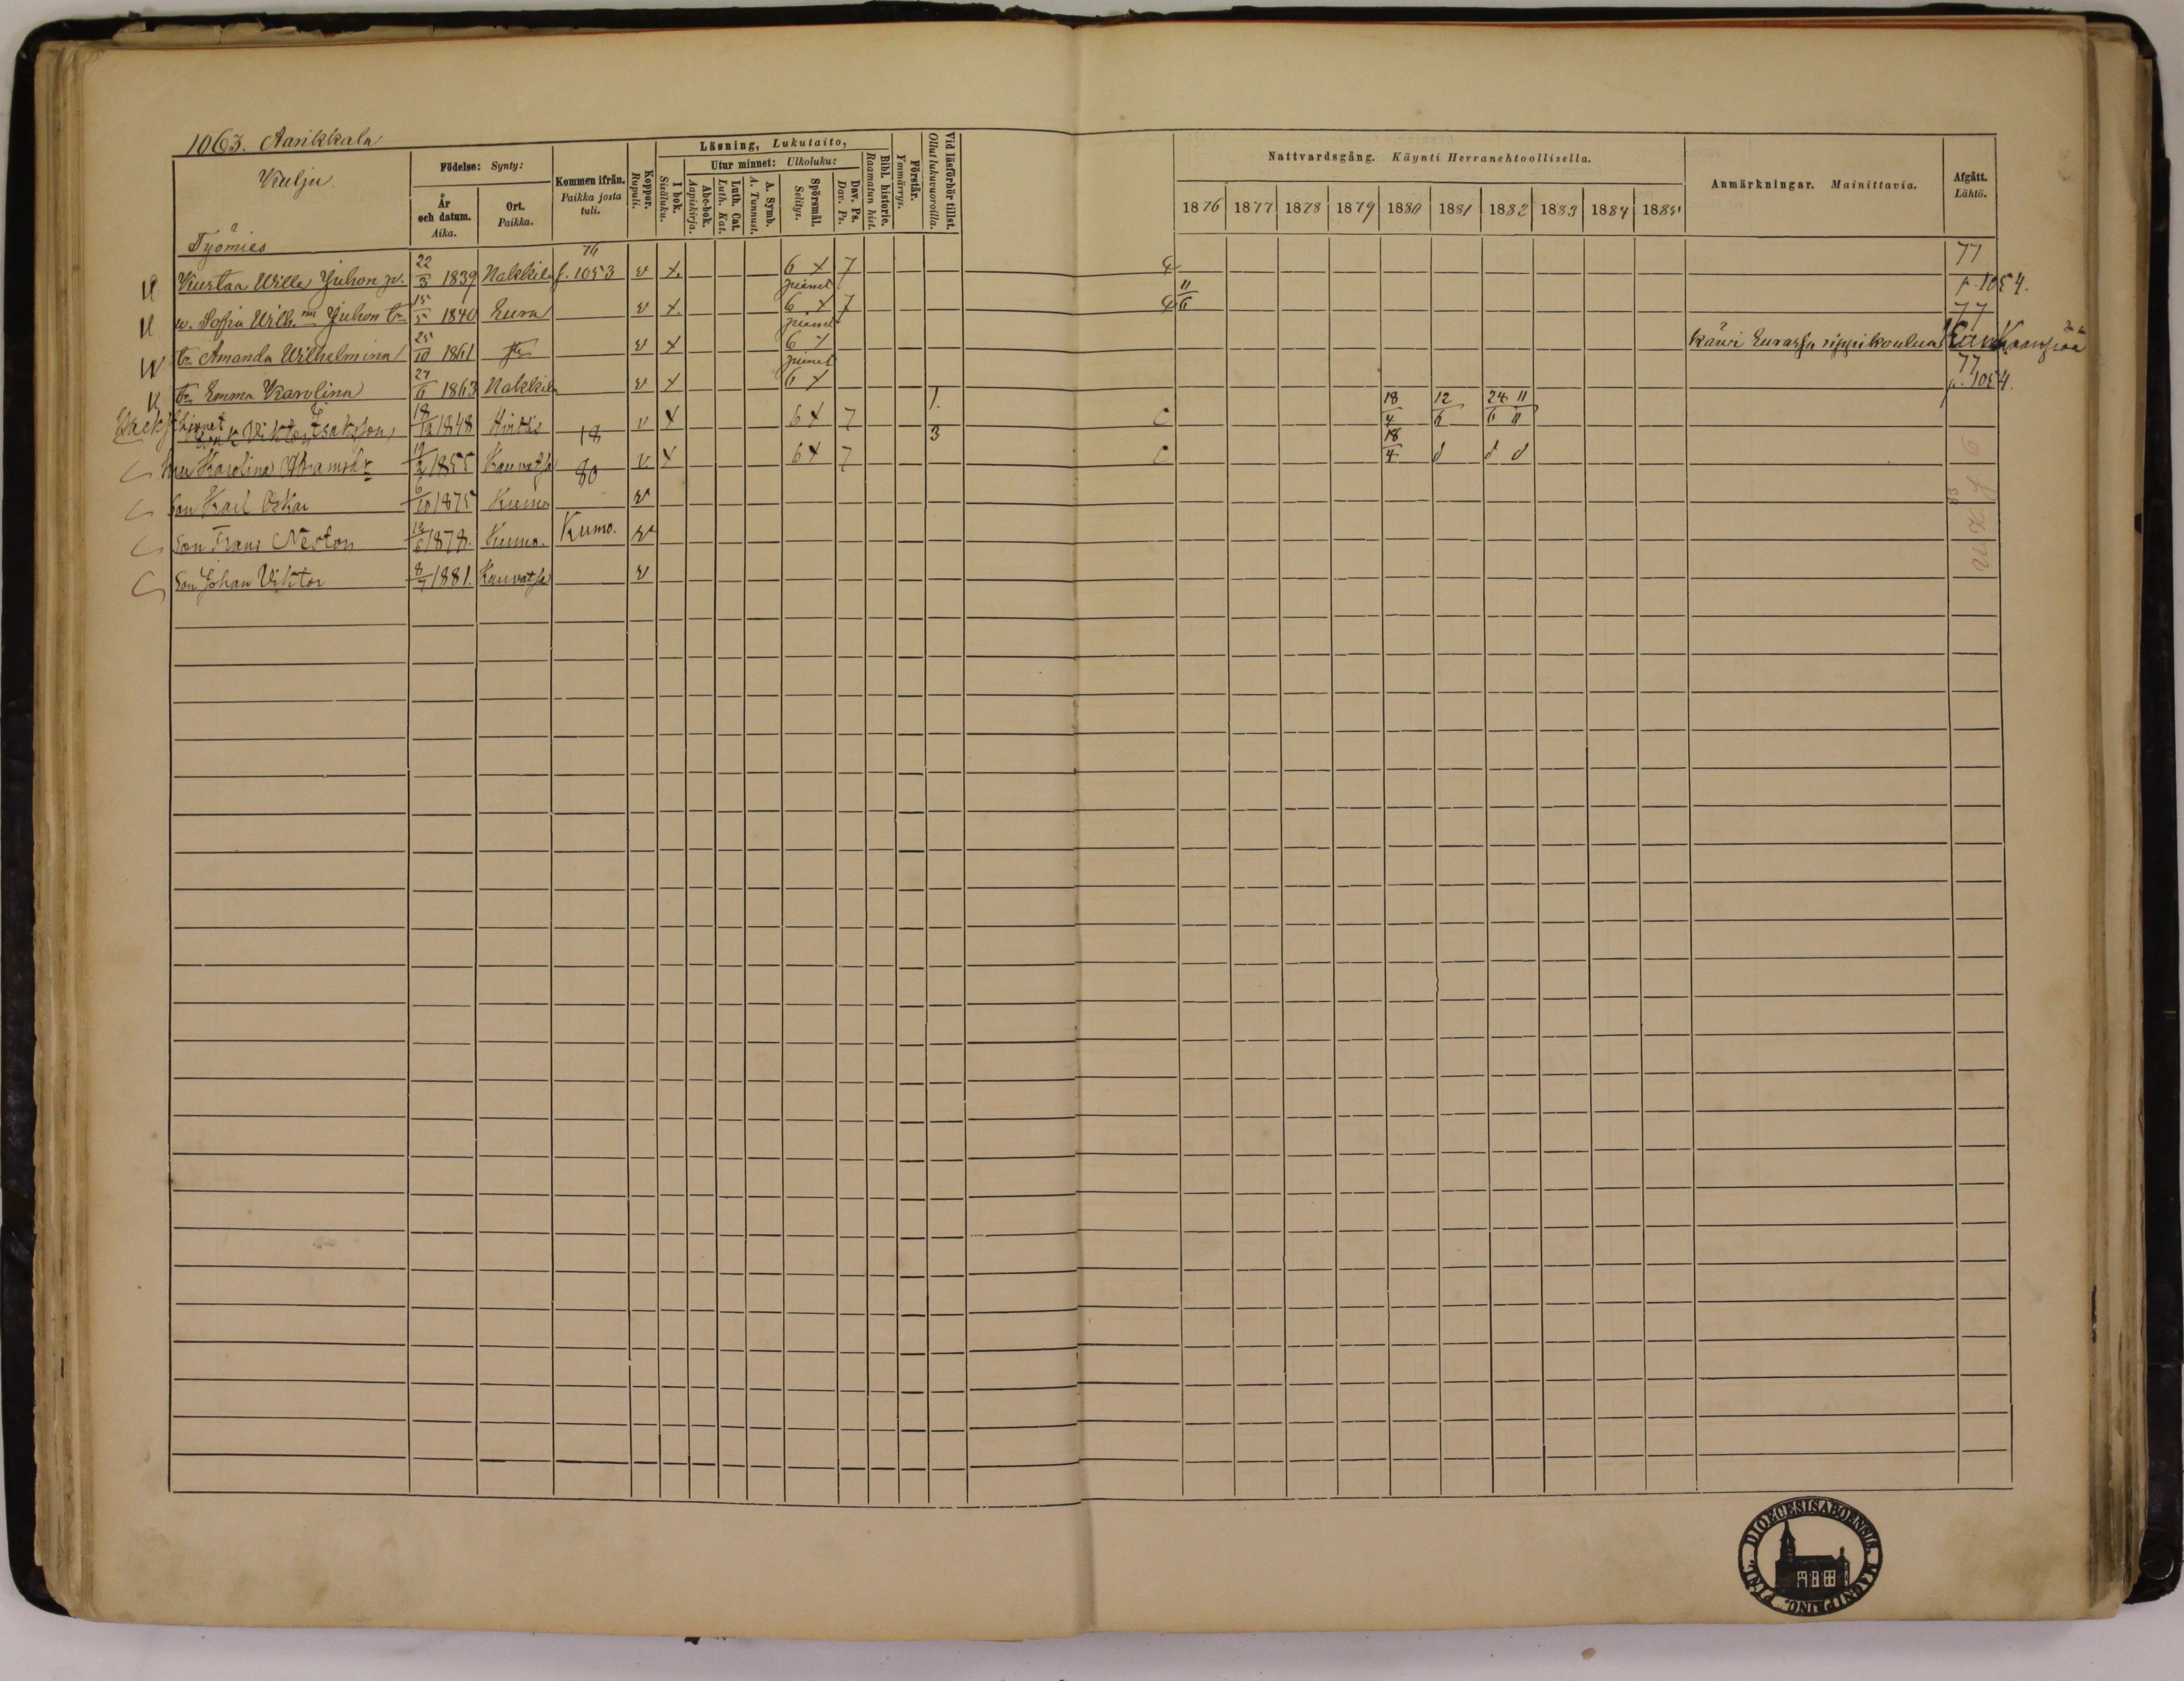 1063. Aarikkala
Kulju
Födelse: Synty:
År och datum. Aika.
Ort. Paikka.
Kommen ifrån. Paikka josta tuli.
Koppor. Rupuli.
Läsning, Lukutaito,
I bok. Sisäluku.
Utur minnet: Ulkoluku:
Abc-bok. Aapiskirja.
Luth. Cat. Luth. Kat.
A. Symb. A. Tunnust.
Spörsmål. Selitys.
Dav. Ps. Dav. Ps.
Bibl. historie. Raamatun hist.
Förstår. Ymmärrys.
Vid läsförhör tillst. Ollut lukuvuoroilla.
Nattvardsgång. Käynti Herranehtoollisella.
1876 1877 1878 1879 1880 1881 1882 1883 1884 1885
Anmärkningar. Mainittavia.
Afgått. Lähtö.
Työmies 76 77
Kustaa Wille Juhon p. 22/3 1839 Nakkila f. 1053 v x 6 x 7 p. 1054.
w. Sofia Wilh. Juhon tr 15/5 1840 Eura v x 6 x 7 11/6 77
tr Amanda Wilhelmina 25/10 1861 v x 6 x käwi Eurassa rippikoulua
tr Emma Karolina 27/6 1863 Nakkila v x 6 x 77 p. 1054.
Viktor Isaksson 18/12 1848 v x 6 x 7 1. 18/4 12/6 24/6 11/11
Karolina 1855 Kauvatsa 18/80 v x 6 x 7 3 18/4 d d d
Son Karl Oskar 6/10 1875 Kumo v
Son Frans Nestor 1878. Kumo. Kumo. v
Son Johan Viktor 8/7 1881. Kauvatsa v
DIOECESIS ABOENSIS